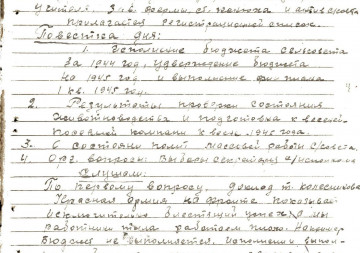 Учителя, Зав. фермы, ст. конюха и актив с/совета
прилагается регистрационой список.
Повестка дня:
1. Исполнение бюджета сельсовета
за 1944 год, удверждение бюджета
на 1945 год и выполнение фин плана
1 кв. 1945 году.
2. Результаты проверки состояния
животноводства и подготовка к весеней
посевной компани к весне 1945 года.
3. О состояни полит массовой работы с/совета.
4. Орг. вопросы: Выборы секретаря
Слушали:
По первому вопросу, доклад т. Колесникова
Красная Армия на фронте показывает
исключително блестящий успех, а мы
работники тыла работаем плохо. Например
Бюджет не выполняется, исполнении